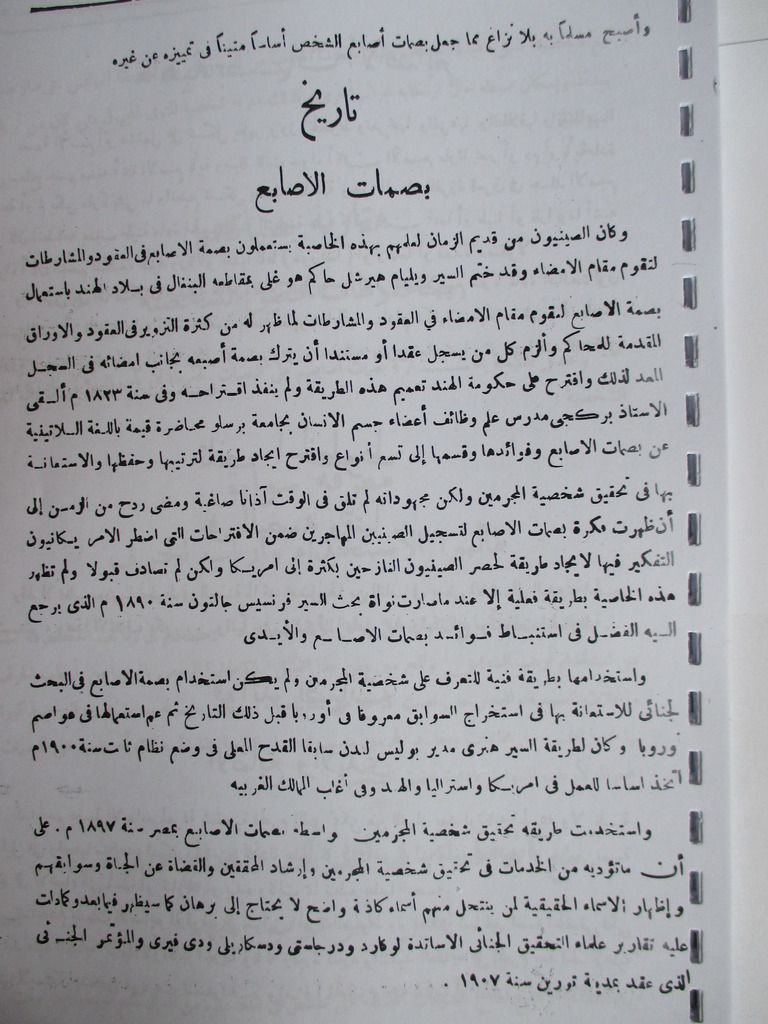 وأصبح مسلما به بلا نزاع مما جعل بصمات أصابع الشخص أساسا متينا فى تمييزه عن غيره
تاريخ
بصمات الاصابع
وكان الصينيون من قديم الزمان لعلمهم بهذه الخاصية يستعملون بصمة الاصابع فى العقود والمشارطات
لتقوم مقام الامضاء وقد ختم السير ويليام هيرشل حاكم هو غلى بمقاطعه البنغال فى بلاد الهند باستعمال
بصمة الاصابع لتقوم مقام الامضاء في العقود والمشارطات لما ظهر له من كثرة التزوير فى العقود والاوراق
المقدمة للمحاكم وألزم كل من يسجل عقدا أو مستندا أن يترك بصمة أصبعه بجانب امضائه فى السجل
المعد لذلك واقترح على حكومة الهند تعميم هذه الطريقة ولم ينفذ اقتراحه وفى سنة ١٨٢٣ م ألقى
الاستاذ بركنجى مدرس علم وظائف أعضاء جسم الانسان بجامعة برسلو محاضرة قيمة باللغة اللاتيفية
عن بصمات الاصابع وفوائدها وقسمها إلى تسع أنواع واقترح ايجاد طريقة لترتيبها وحفظها والاستعانة
بها فى تحقيق شخصية المجرمين ولكن مجهوداته لم تلق فى الوقت آذانا صاغية ومضى ردح من الزمن إلى
أن ظهرت فكرة بصمات الاصابع لتسجيل الصينيين المهاجرين ضمن الاقتراحات التى اضطر الامريكانيون
التفكير فيها لايجاد طريقة لحصر الصينيون النازحين بكثرة إلى امريكا ولكن لم تصادف قبولا ولم تظهر
هذه الخاصية بطريقة فعلية إلا عند ماصارت نواة بحث السير فرنسيس جالتون سنة ١٨٩٠ م الذى يرجع
اليه الفضل فى استنباط فوائد بصمات الاصابع والأيدى
واستخدامها بطريقة فنية للتعرف على شخصية المجرمين ولم يكن استخدام بصمة الاصابع فى البحث
لجنائى للاستعانة بها فى استخراج السوابق معروفا فى أوروبا قبل ذلك التاريخ ثم عم استعمالها فى عواصم
وروبا وكان لطريقة السير هنرى مدير بوليس لندن سابقا القدح المعلى فى وضع نظام ثابت سنة ١٩٠٠م
اتخذ اساسا للعمل فى امريكا واستراليا والهند وفى أغلب الممالك الغربيه
واستخدمت طريقه تحقيق شخصية المجرمين واسطة بصمات الاصابع بمصر سنة ١٨٩٧ م . على
أن ماتؤديه من الخدمات فى تحقيق شخصية المجرمين وإرشاد المحققين والقضاة عن الجناة وسوابقهم
وإظهار الاسماء الحقيقية لمن ينتحل منهم أسماء كاذبة واضح لا يحتاج إلى برهان كما سيظهر فيما بعد وكما دلت
عليه تقارير علماء التحقيق الجنائى الاساتدة لوكارد ودرجاستى ودسكاريلى ودى فيرى والمؤتمر الجنـ ئى
الذى عقد بمدينة تورين سنة ١٩٠٧ .